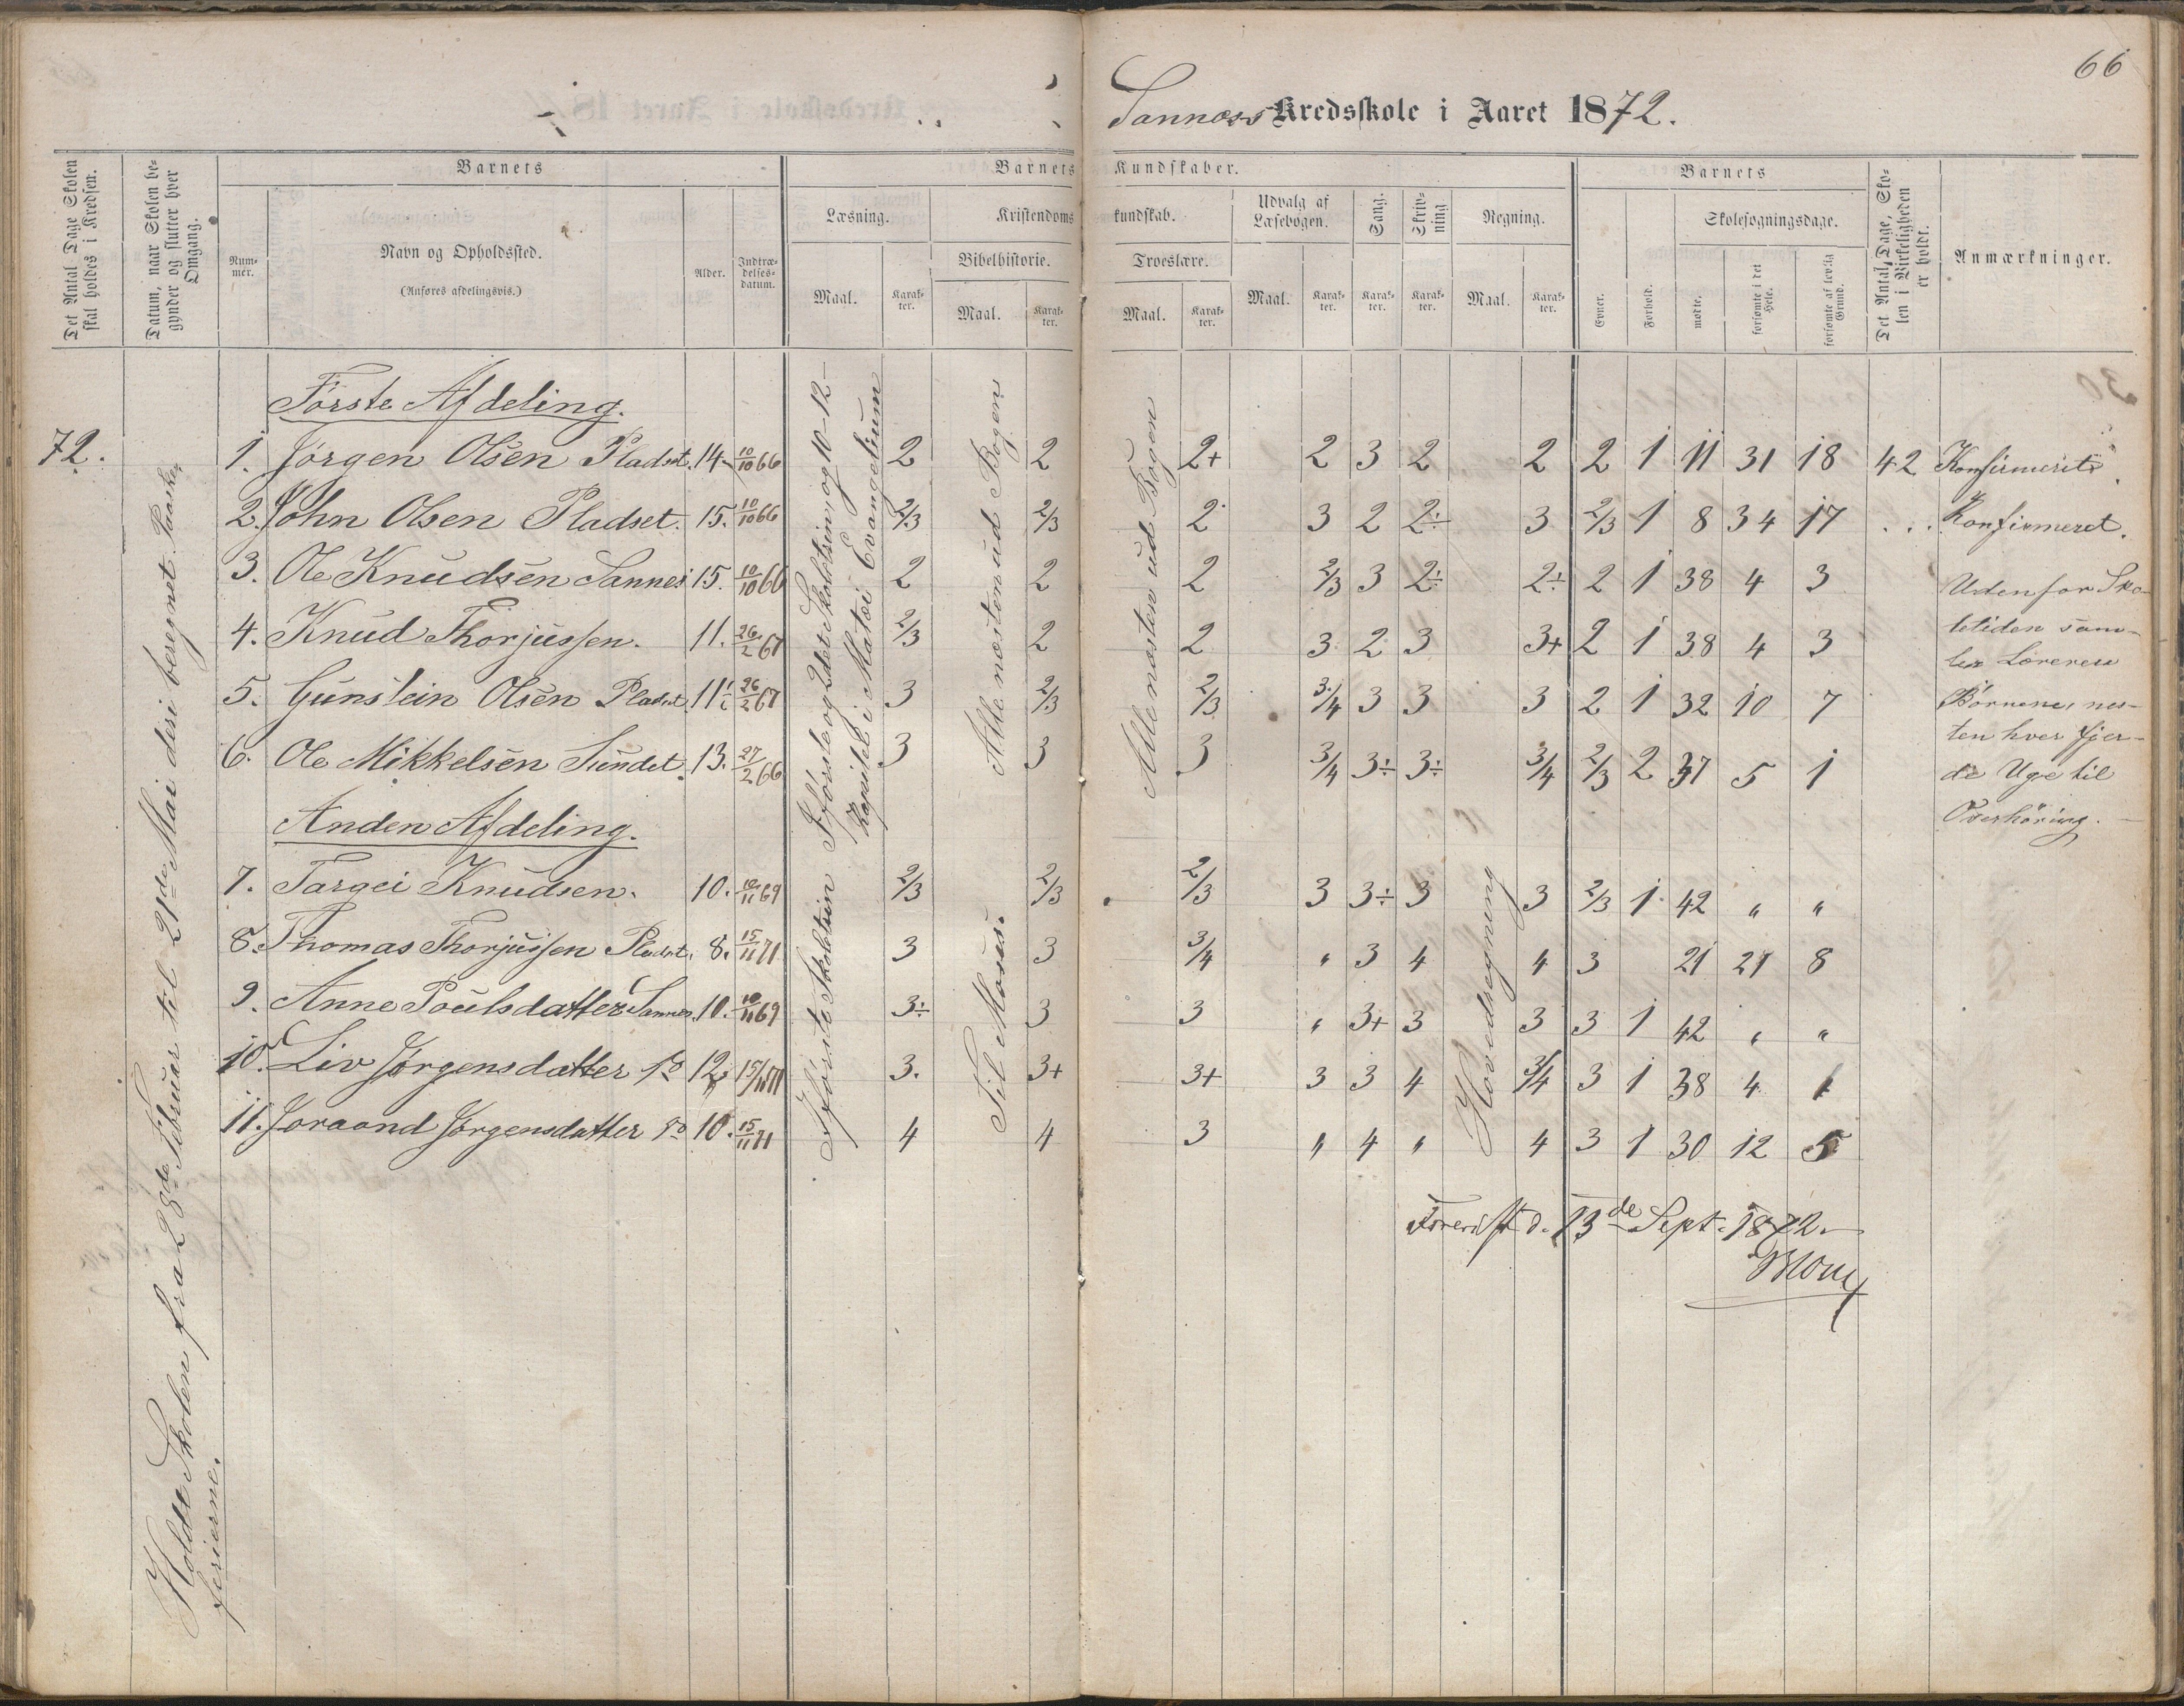 66
Sannes Kredsskole i Aaret 1872.
Det Antal Dage Skolen skal holdes i Kredsen.
Datum, naar Skolen begynder og slutter hver Omgang.
Barnets
Num-mer.
Navn og Opholdssted.
(Anføres afdelingsvis.)
Alder.
Indtræ-delses-datum.
Barnets Kundskaber.
Læsning.
Maal.
Karak-ter.
Kristendomskundskab.
Bibelhistorie.
Maal.
Karak-ter.
Troeslære.
Maal.
Karak-ter.
Udvalg af Læsebogen.
Maal.
Karak-ter.
Sang.
Karak-ter.
Skriv-ning
Karak-ter.
Regning.
Maal.
Karak-ter.
Barnets
Evner.
Forhold.
Skolesøgningsdage.
mødte.
forsømte i det Hele.
forsømte af lovlig Grund.
Det Antal Dage, Skolen i Virkeligheden er holdt.
Anmærkninger.
Holdt Skolen fra 28de Februar til 21de Mai deri beregnet Paaske
ferierne.
Første Afdeling.
72. 1. Jørgen Olsen Pladset. 14 10/10 66 2 2 2+ 2 3 2 2 2 1 11 31 18 42 Konfirmeret
2. John Olsen Pladset. 15. 10/10 66 2/3 2/3 2 3 2 2÷ 3 2/3 1 8 34 17 Konfirmeret.
3. Ole Knudsen Sannes 15. 10/10 66 2 2 2 2/3 3 2÷ 2÷ 2 1 38 4 3
4. Knud Thorjussen. 11. 26/2 67 2/3 2 2 3 2 3 3+ 2 1 38 4 3
5. Gunstein Olsen Pladset 11 26/2 67 3 2/3 2/3 3/4 3 3 3 2 1 32 10 7
6. Ole Mikkelsen Sundet. 13. 27/2 66 3 3 3 3/4 3÷ 3÷ 3/4 2/3 2 37 5 1
Udenfor Sko-
letiden sam-
ler Læreren
Børnene, nes-
ten hver fjer-
de Uge til
Overhøring.
Iførste og 2det Skoletrin, og 10-12
Kapitel i Matæi Evangelium
Alle næsten ud Bogen
Alle næsten ud Bogen
Anden Afdeling.
7. Targei Knudsen. 10. 10/11 69 2/3 2/3 2/3 3 3÷ 3 3 2/3 1 42 " "
8. Thomas Thorjussen Pladset. 8. 15/11 71 3 3 3/4 " 3 4 4 3 21 21 8
9. Anne Poulsdatter Sannes. 10. 10/11 69 3÷ 3 3 " 3+ 3 3 3 1 42 " "
10. Liv Jørgensdatter do 12. 15/11 71 3. 3+ 3+ 3 3 4 3/4 3 1 38 4
11. Joraand Jørgensdatter do 10. 15/11 71 4 4 3 " 4 " 4 3 1 30 12 5
Iførste Skoletrin
Til Moses.
Hovedregning
Forevist d. 13de Sept. 1872.
Blom